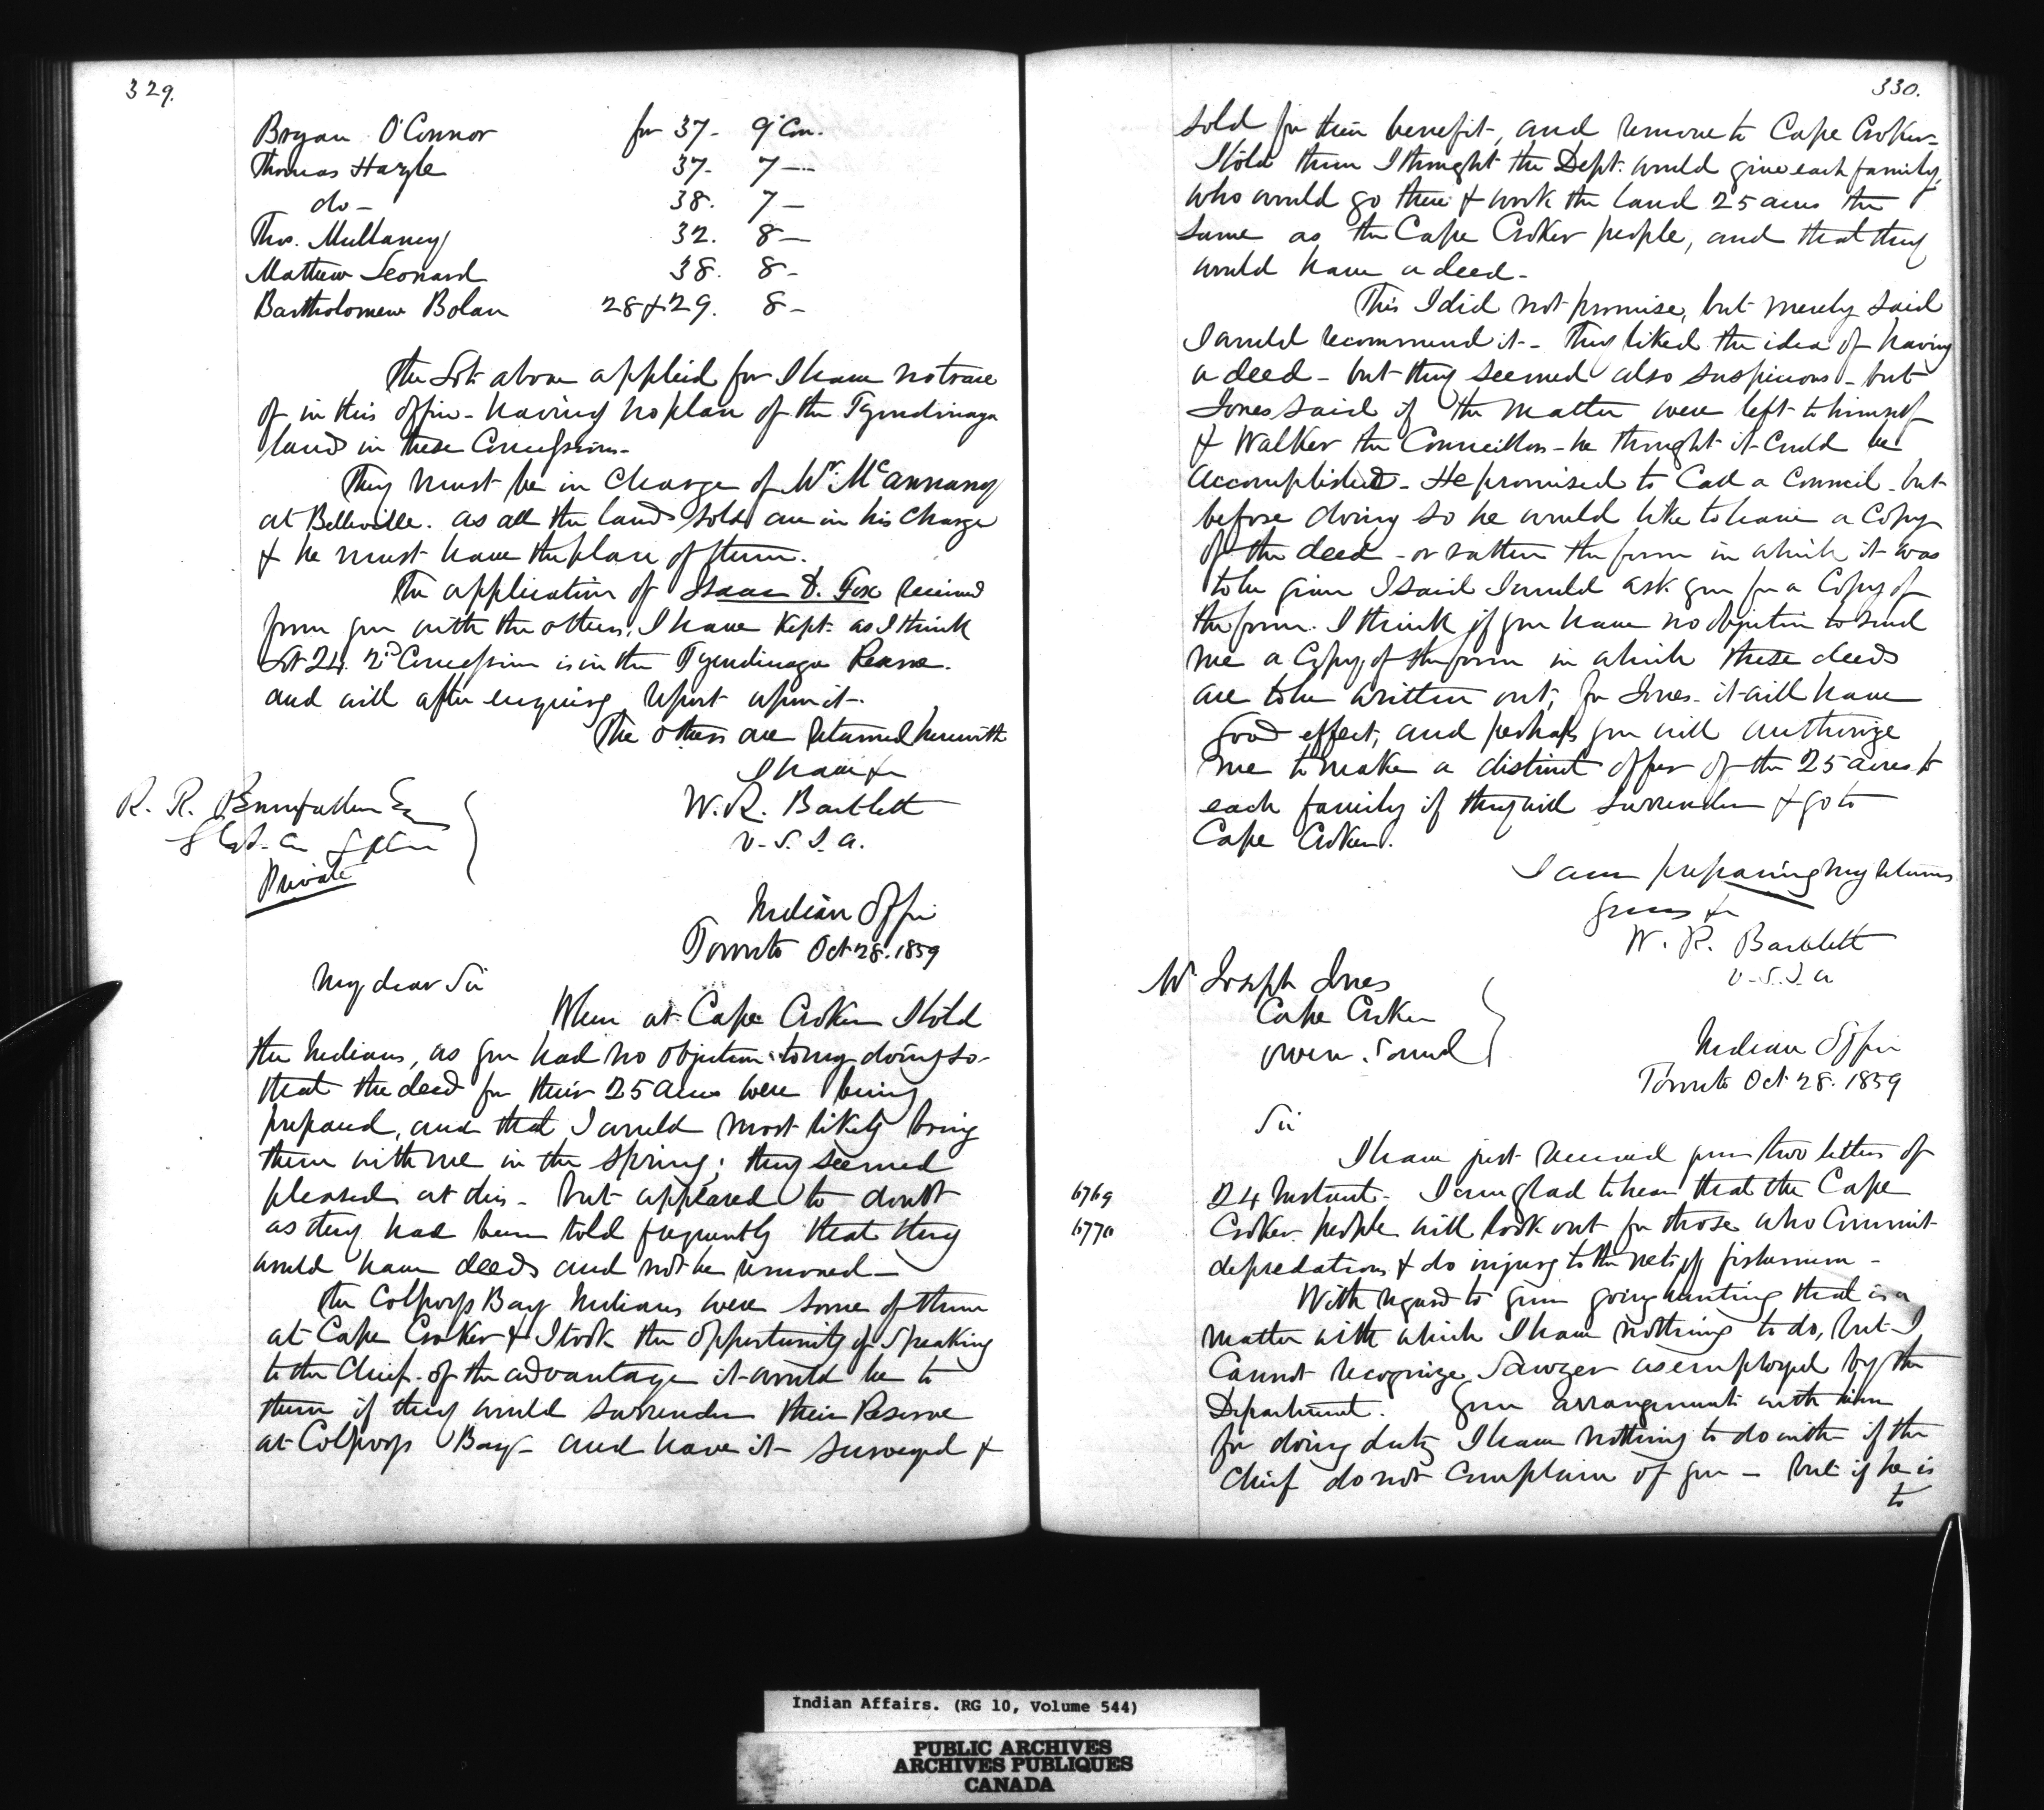 329.
Bryan O'Connor for 37- 9 Con.
Thomas Hayle 37. 7 —
do — 38. 7 —
Thos. Mullaney 32. 8 —
Mathew Leonard 38. 8 -
Bartholomew Bolan 28 & 29. 8 -
The Lots above applied for I have no trace
of in this office - having no plan of the Tyendinaga
lands in these Concessions -
They must be in charge of Mr. McAnnany
at Belleville. as all the lands sold are in his charge
& he must have the plan of them.
The application of Isaac D. Fox received
from you with the others, I have kept as I think
Lot 24. 2nd Concession is in the Tyendinaga Reserve.
and will after enquiring report upon it -.
The others are returned herewith
I have &c
W. R. Bartlett
V. S. I. A.
R. R. Esq
Private
Indian Office
Toronto Oct 28. 1859
My dear Sir
When at Cape Croker I told
the Indians, as you had no objection to my doing so -
that the deed for their 25 acres were being
prepared, and that I would most likely bring
them with me in the Spring; they seemed
pleased at this - but appeared to doubt
as they had been told frequently that they
would have deeds and not be removed —
The Colpoys Bay Indians were some of them
at Cape Croker & I took the opportunity of speaking
to the Chief - of the advantage it would be to
them if they would surrender their Reserve
at Colpoys Bay - and have it surveyed &
330.
sold for their benefit, and remove to Cape Croker -
I told them I thought the Dept. would give each family,
who would go there & work the land 25 acres the
same as the Cape Croker people, and that they
would have a deed -
This I did not promise, but merely said
I would recommend it - They liked the idea of having
a deed - but they seemed also suspicious - but
Jones said if the matter were left to himself
& Walker the Councillor - he thought it could be
accomplished - He promised to call a Council - but
before doing so he would like to have a Copy
of the deed - or rather the form in which it was
to be given I said I would ask you for a Copy of
the form. I think if you have no objection to send
me a Copy of the form in which these deeds
are to be written out, for Jones - it will have
good effect, and perhaps you will authorize
me to make a distinct offer of the 25 acres to
each family if they will surrender & go to
Cape Croker.
I am preparing my returns
Yours &c
W. R. Bartlett
V. S. I. A
Mr Joseph Jones
Cape Croker
Owen Sound
Indian Office
Toronto Oct 28. 1859
Sir
I have just received your two letters of
6769 24 Instant - I am glad to hear that the Cape
6770 Croker people will look out for those who commit
depredations & do injury to the nets of fishermen -
With regard to your going hunting that is a
matter with which I have nothing to do, but I
cannot recognize Sawyer as employed by the
Department. Your arrangement with him
for doing duty I have nothing to do with if the
Chief do not complain of you - but if he is
to
Indian Affairs. (RG 10, Volume 544)
PUBLIC ARCHIVES
ARCHIVES PUBLIQUES
CANADA